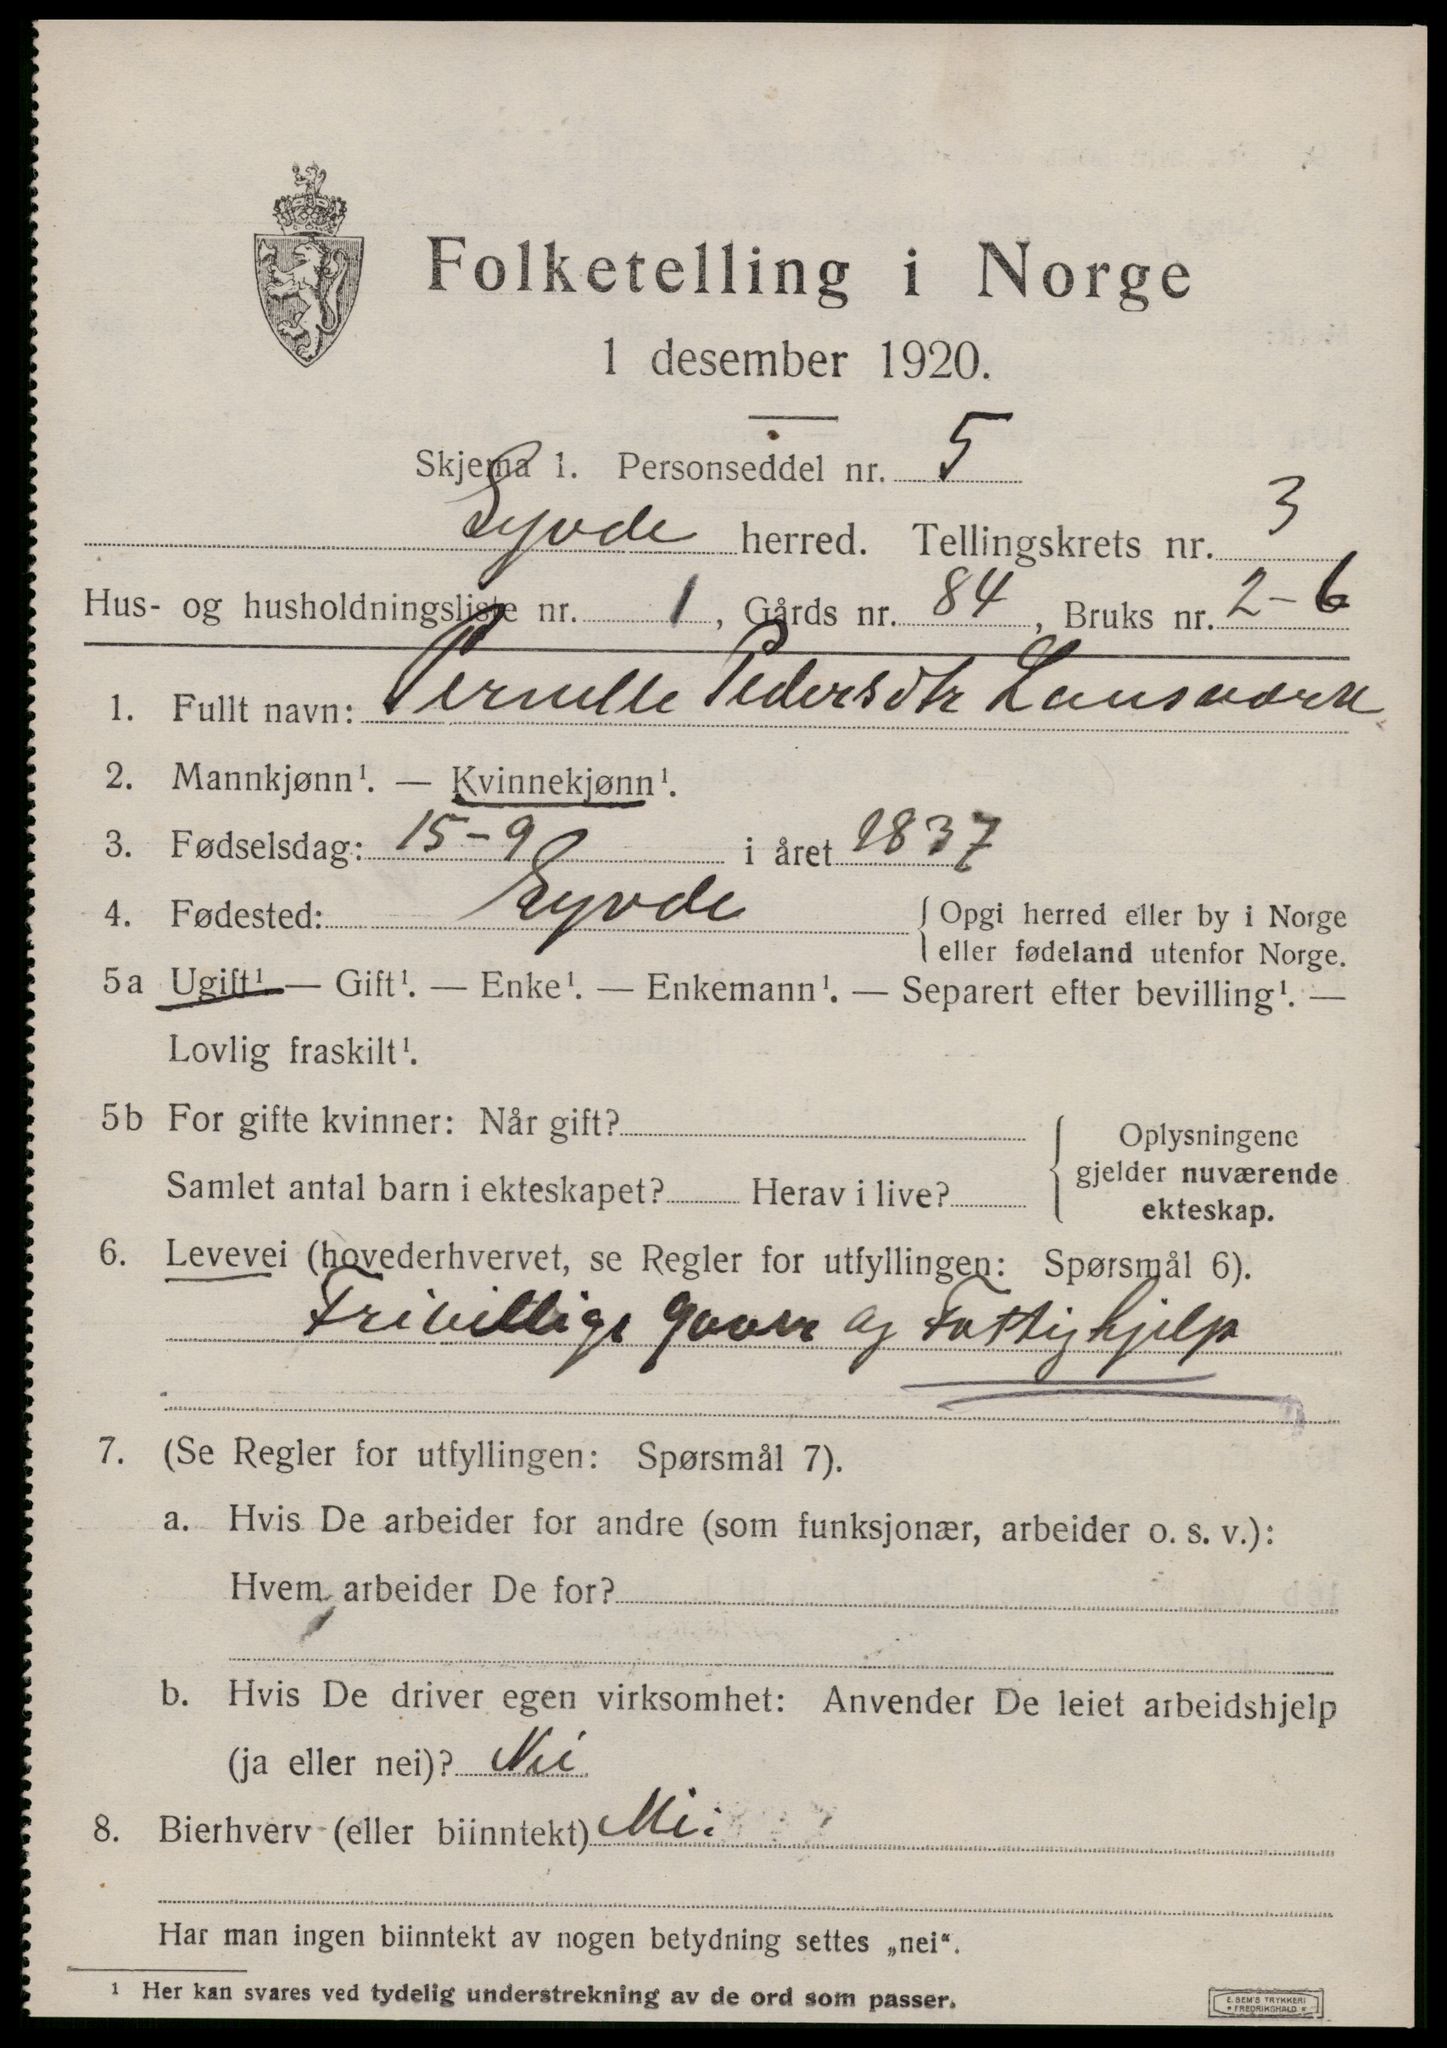 Folketelling i Norge
1 desember 1920.
Skjema 1. Personseddel nr. 5
Syvde herred. Tellingskrets nr. 3
Hus- og husholdningsliste nr. 1, Gårds nr. 84, Bruks nr. 2-6
1. Fullt navn: Pernille Pedersdtr
2. Mannkjønn¹. — Kvinnekjønn¹.
3. Fødselsdag: 15-9 i året 1837
4. Fødested: Syvde { Opgi herred eller by i Norge
eller fødeland utenfor Norge.
5a Ugift¹. — Gift¹. — Enke¹. — Enkemann¹. — Separert efter bevilling¹. —
Lovlig fraskilt¹.
5b For gifte kvinner: Når gift?
Samlet antal barn i ekteskapet? Herav i live?
{ Oplysningene
gjelder nuværende
ekteskap.
6. Levevei (hovederhvervet, se Regler for utfyllingen: Spørsmål 6).
Frivillige gaver og Fattighjelp
7. (Se Regler for utfyllingen: Spørsmål 7).
a. Hvis De arbeider for andre (som funksjonær, arbeider o. s. v.):
Hvem arbeider De for?
b. Hvis De driver egen virksomhet: Anvender De leiet arbeidshjelp
(ja eller nei)? Nei
8. Bierhverv (eller biinntekt) Nei
Har man ingen biinntekt av nogen betydning settes „nei“.
¹ Her kan svares ved tydelig understrekning av de ord som passer.
E. SEM'S TRYKKERI
* FREDRIKSHALD *